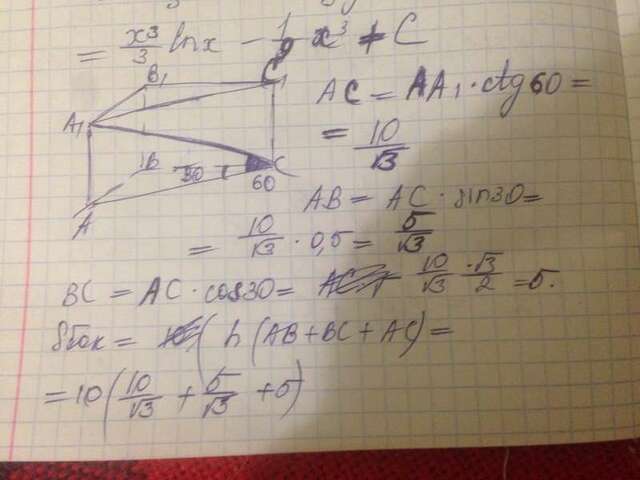 = x³/3 lnx - 1/9 x³ + C
B₁
C₁
A₁
AC = AA₁ · ctg60 =
= 10/√3
B
30
C
60
A
AB = AC · sin30 =
= 10/√3 · 0,5 = 5/√3
BC = AC · cos30 = 10/√3 · √3/2 = 5.
Sбок = h (AB + BC + AC) =
= 10 (10/√3 + 5/√3 + 5)